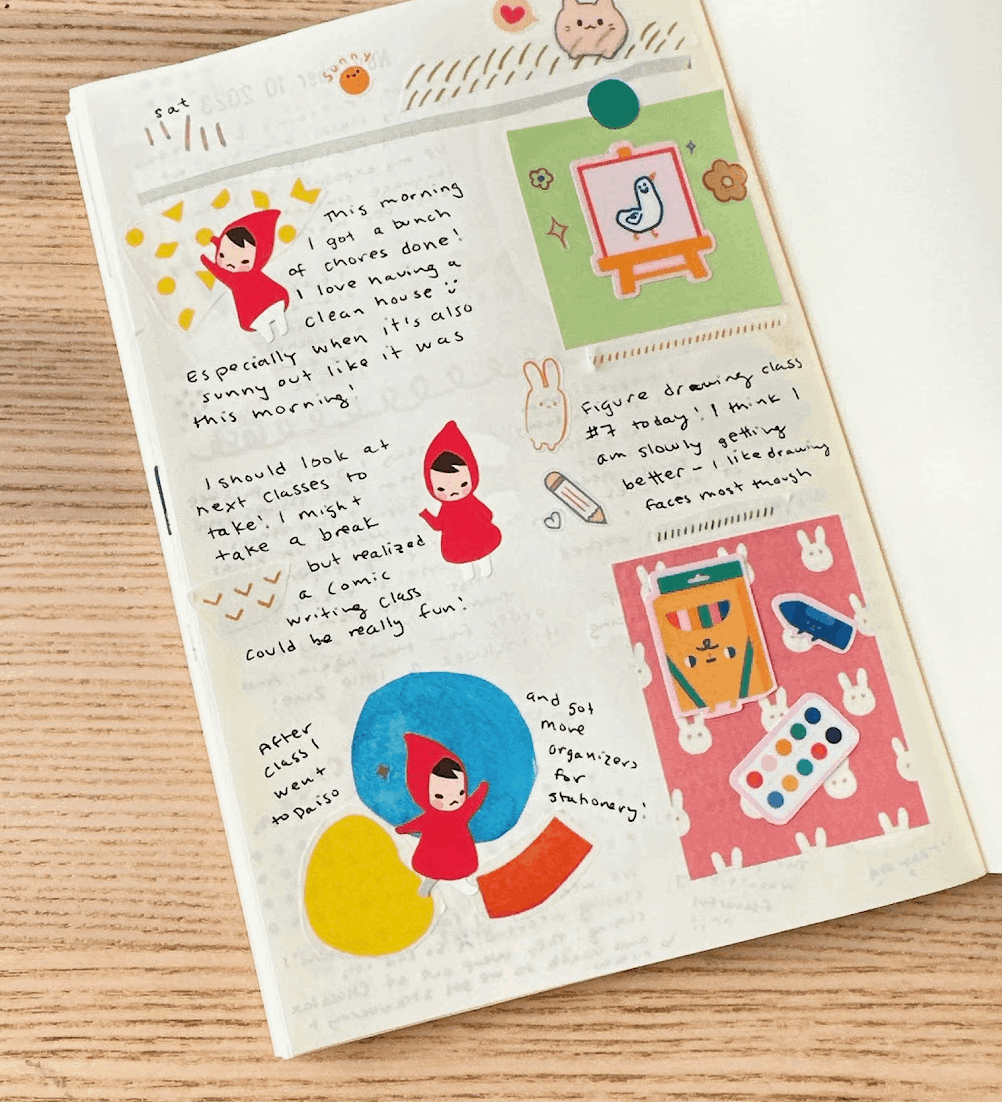 sat
11/11
sunny
This morning
I got a bunch
of chores done!
I love having a
clean house
Especially when it's also
sunny out like it was
this morning!
I should look at
next classes to
take! I might
take a break
but realized
a comic
writing class
could be really fun!
After
class I
went
to Daiso
and got
more
organizers
for
stationery!
Figure drawing class
#7 today! I think I
am slowly getting
better - I like drawing
faces most though